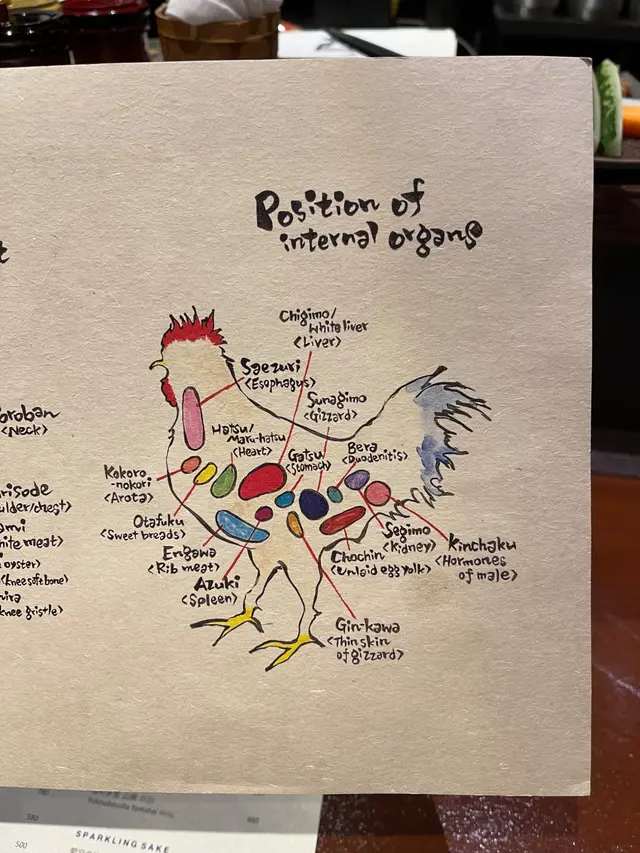 Position of
internal organs
Chigimo/
White liver
<Liver>
Saezuri
<Esophagus>
Sunagimo
<Gizzard>
Hatsu/
Maru-hatsu
<Heart>
Gatsu
<Stomach>
Bera
<Duodenitis>
Kokoro
-nokori
<Arota>
Otafuku
<Sweet breads>
Engawa
<Rib meat>
Azuki
<Spleen>
Chochin
<Unlaid egg yolk>
Segimo
<Kidney>
Kinchaku
<Hormones
of male>
Gin-kawa
<Thin skin
of gizzard>
oroban
<Neck>
risode
ulder/chest>
ami
hite meat>
oyster>
<knee soft bone>
ira
knee gristle>
580
480
500
SPARKLING SAKE